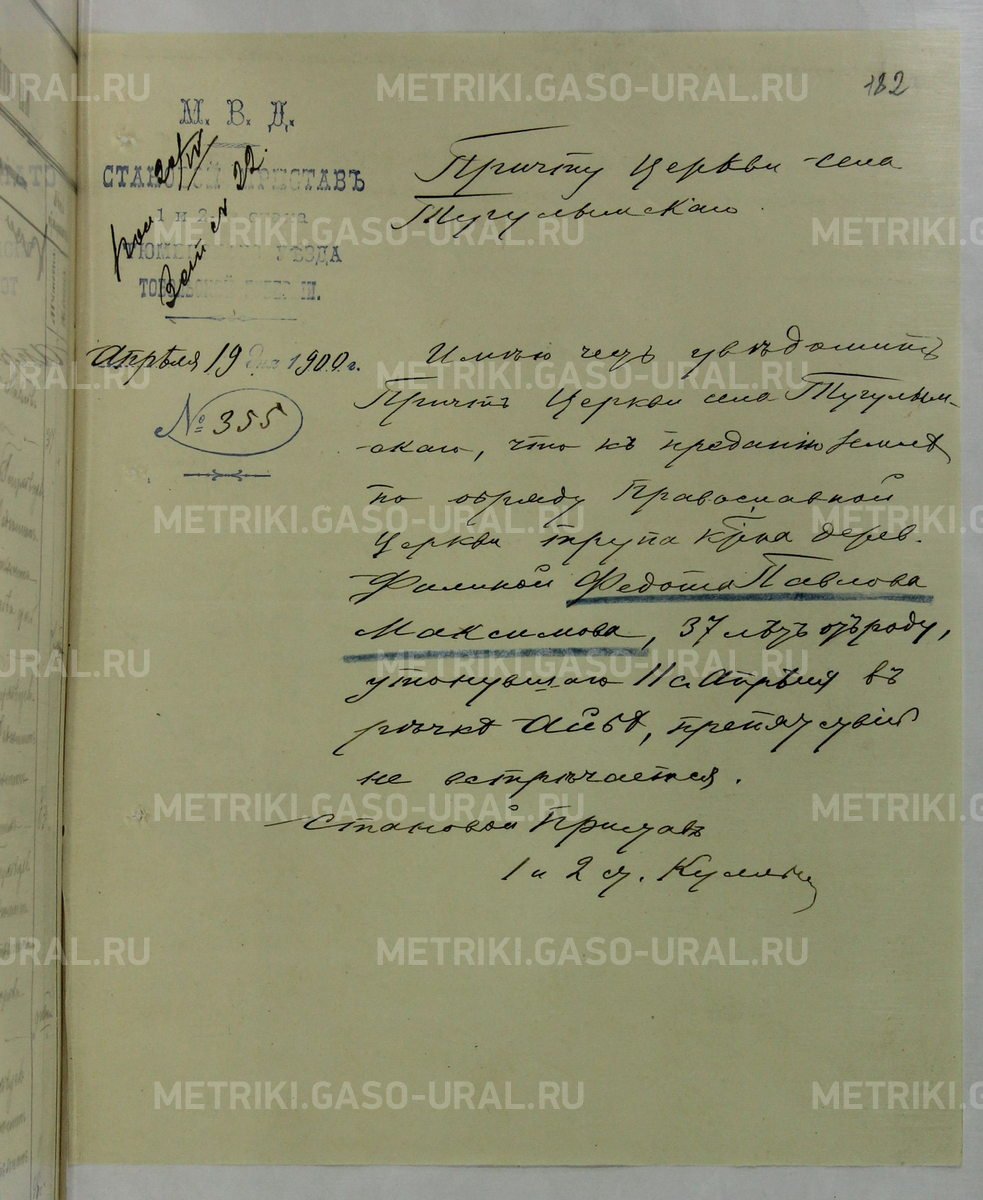 182
М. В. Д.
СТАНОВОЙ ПРИСТАВЪ
1 и 2 стана
ТЮМЕНСКАГО УѢЗДА
ТОБОЛЬСКОЙ ГУБЕРНІИ.
Апрѣля 19 дня 1900 г.
№ 355
Причту Церкви села
Тугулымскаго.
Имѣю честь увѣдомить
Причтъ Церкви села Тугулым-
скаго, что къ преданію землѣ
по обряду Православной
Церкви трупа кр-на дерев.
Филиной Федота Павлова
Максимова, 37 лѣтъ отъ роду,
утонувшаго 11 с. Апрѣля въ
рѣчкѣ Айбѣ, препятствій
не встрѣчается.
Становой Приставъ
1 и 2 ст.
METRIKI.GASO-URAL.RU